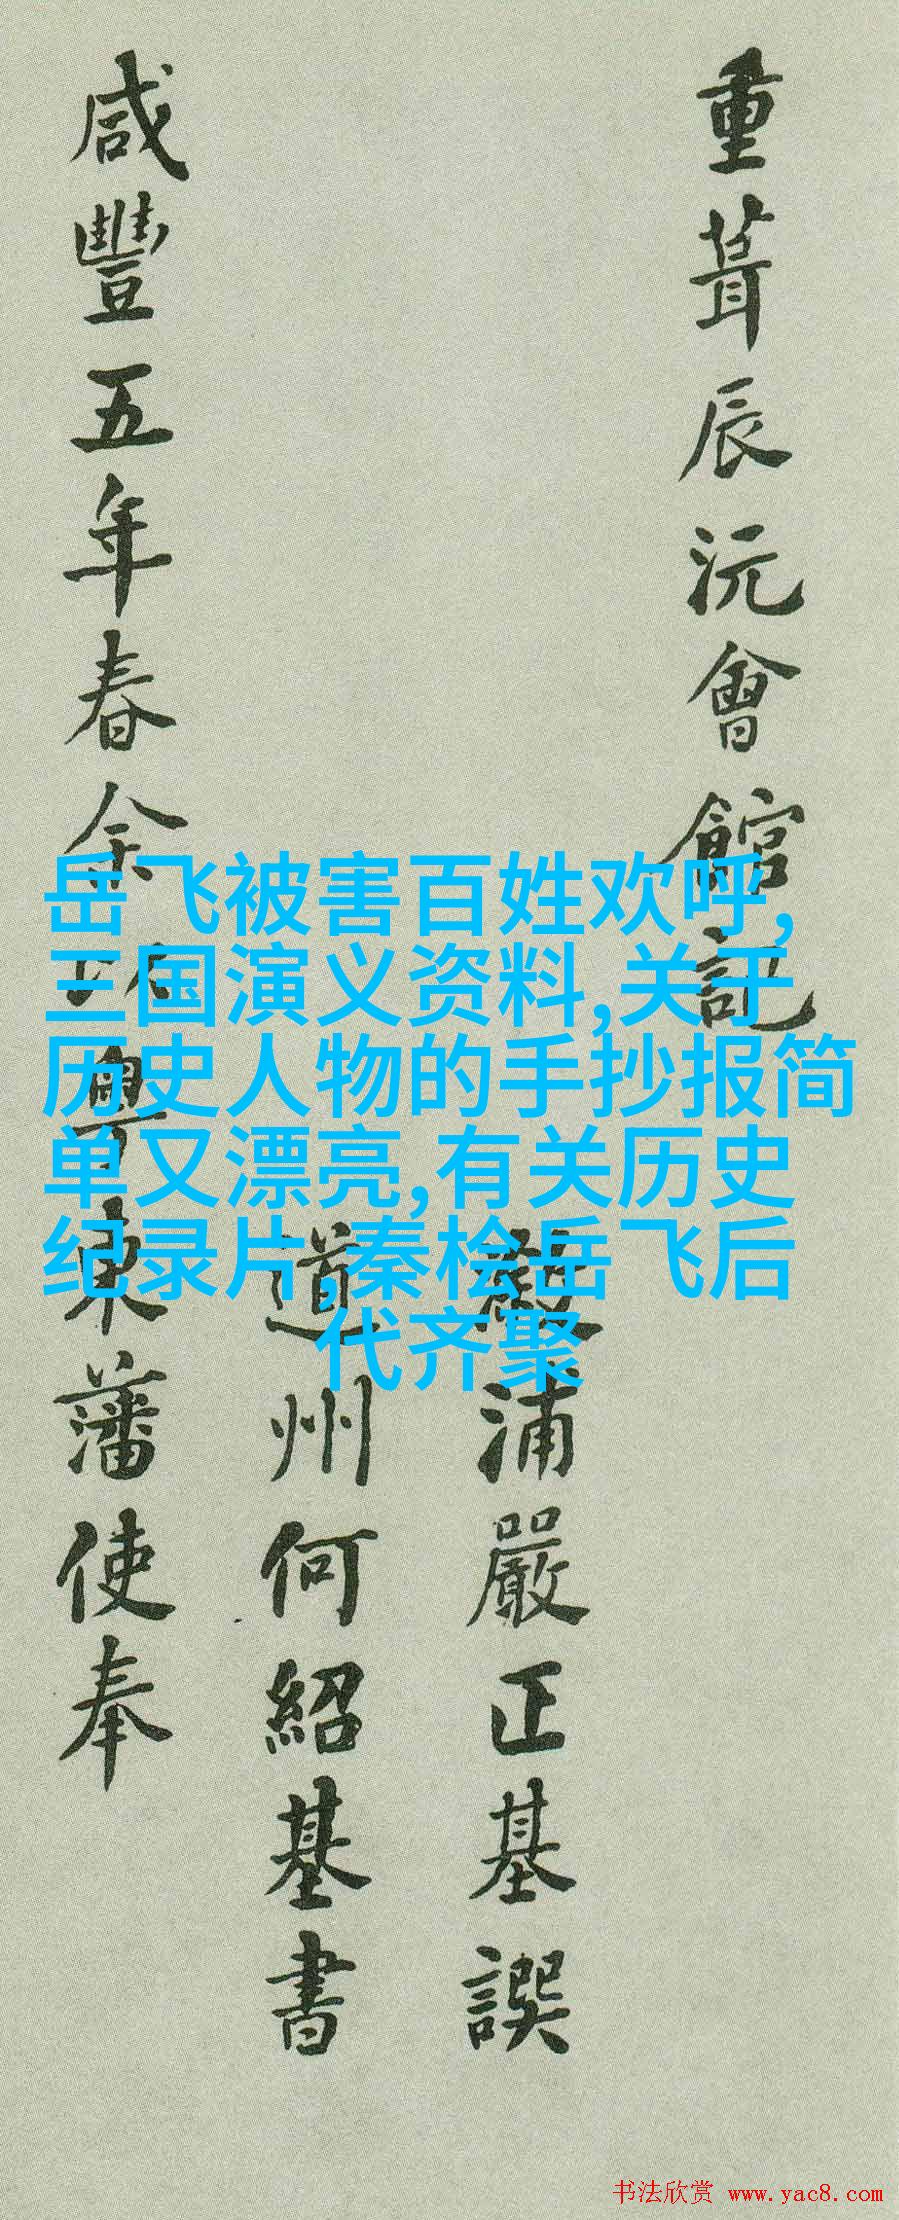 重葺辰沅會館記
浦嚴正基譔
道州何紹基書
咸豐五年春余以粵東藩使奉
岳飞被害百姓欢呼,
三国演义资料,关于
历史人物的手抄报简
单又漂亮,有关历史
纪录片,秦桧岳飞后
代齐聚
书法欣赏 www.yac8.com